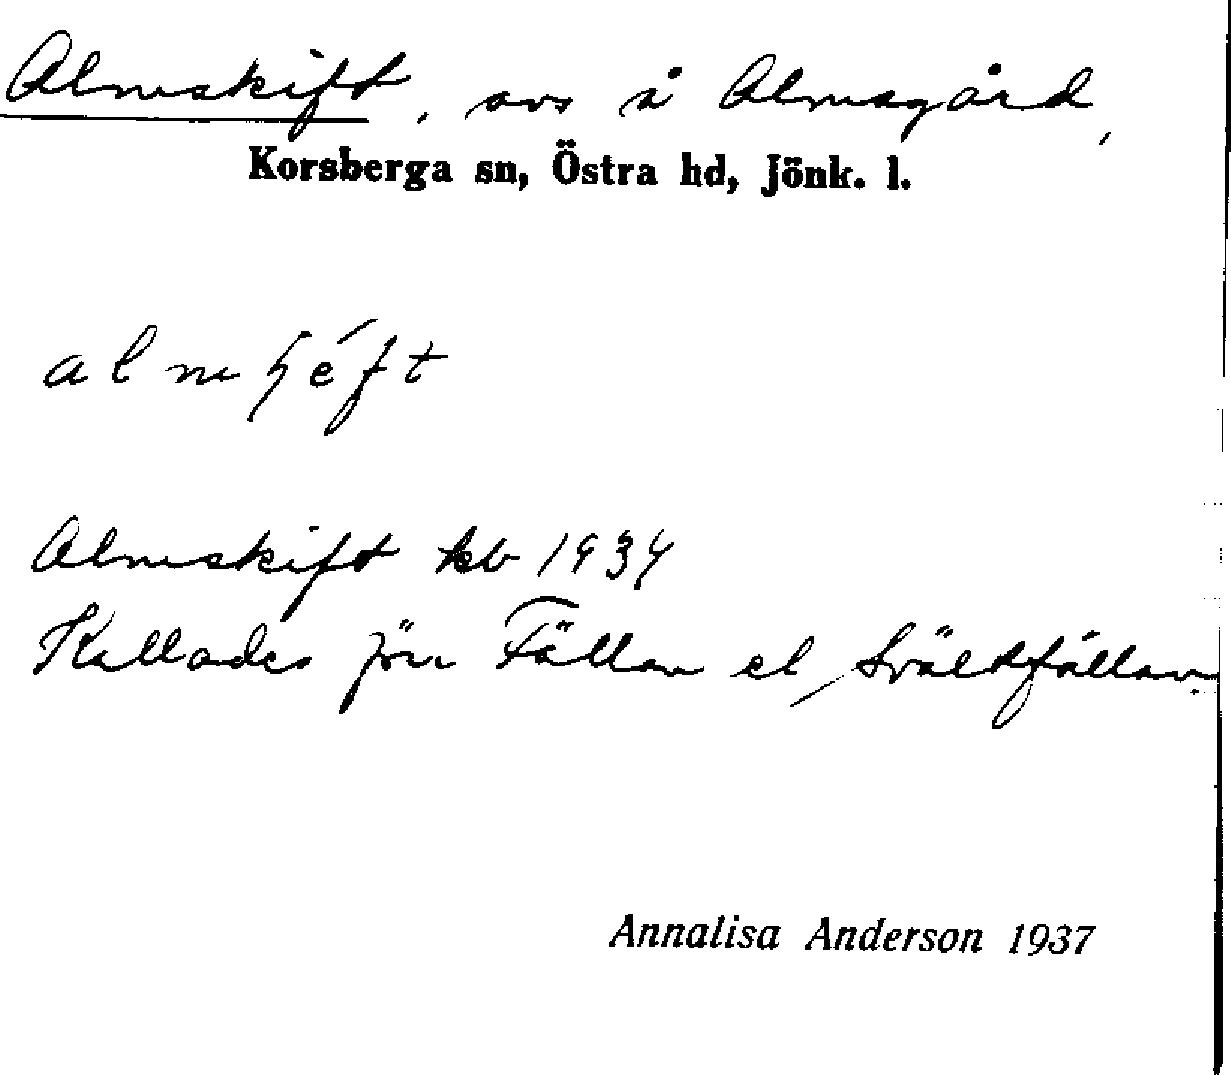 Almskift, avs å Almsgård,
Korsberga sn, Östra hd, Jönk. l.
almɧéft
Almskift kb 1934
Kallades förr Fällan el, Svältfällan.
Annalisa Anderson 1937